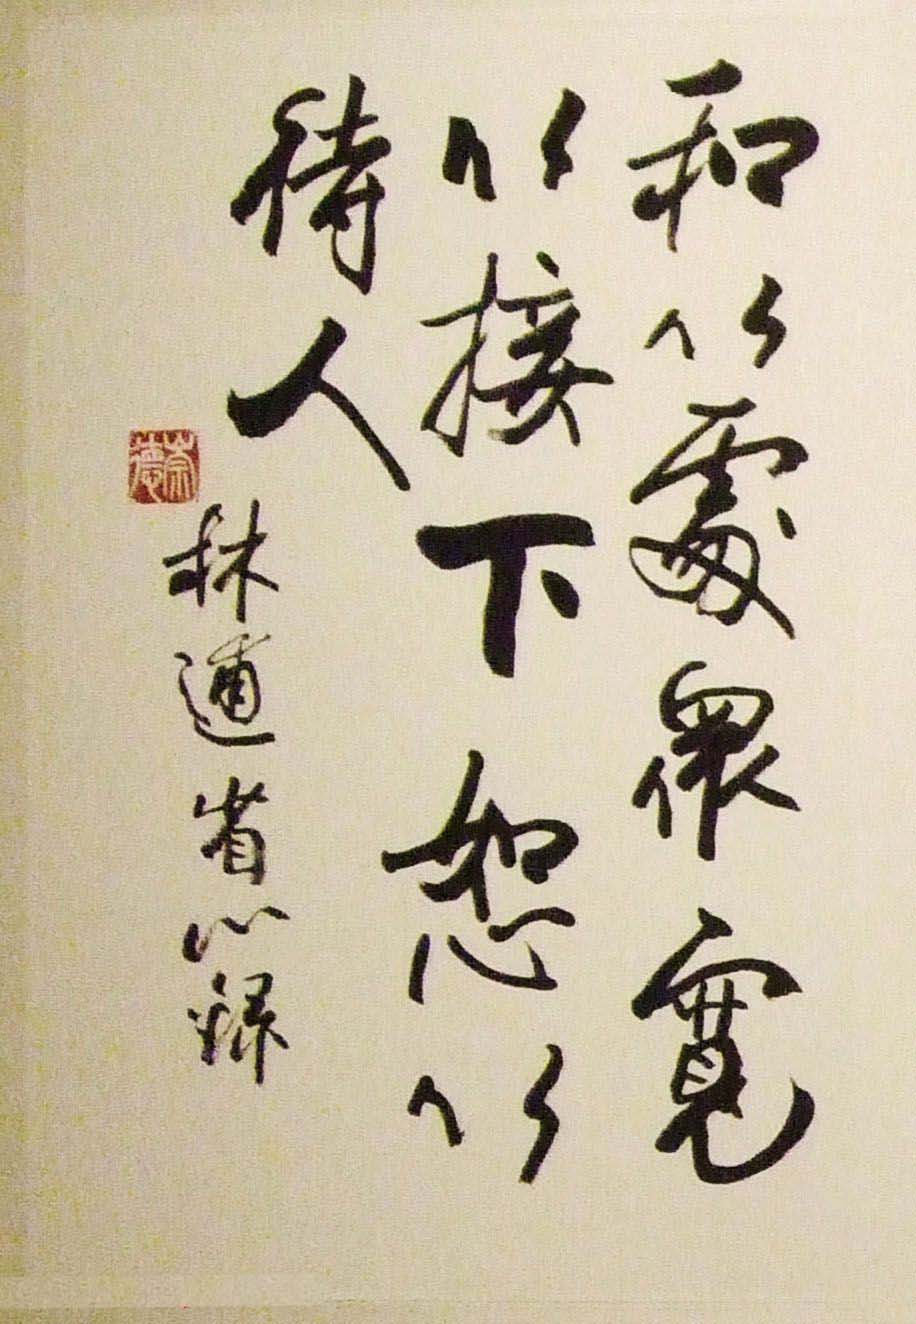 和以處眾寬
以接下恕以
待人
林逋省心錄
崇德